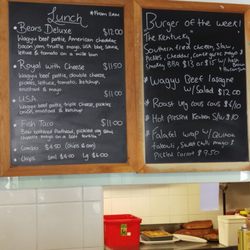 Lunch
* From 11am
* Bears Deluxe $12.00
Wagyu beef pattie, American cheddar,
bacon jam, truffle mayo, USA slaw, slaw,
lettuce & tomato on a milk bun
* Royal with Cheese $11.50
Wagyu beef pattie, double cheese,
pickles, lettuce, tomato, ketchup,
mustard & mayo
* USA $11.00
Wagyu beef pattie, triple cheese, pickles
onion, ketchup, mustard
* Fish Taco $11.00
Beer battered flathead, pickled slaw
chipotle mayo on a soft tortilla
* Combo $4.50 (chips & can)
* Chips sml $4.00 lg $6.00
Burger of the week!
'The Kentucky'
Southern fried chicken, Slaw,
Pickles, Cheddar, mayo &
Smokey BBQ $13 or $15 w/
* Wagyu Beef lasagne
w/ Salad $12.00
* Roast Veg cous cous
* Hot pressed
* Falafel wrap w/ Quinoa
tabouli, sweet chilli mayo &
Pickled carrot $9.50